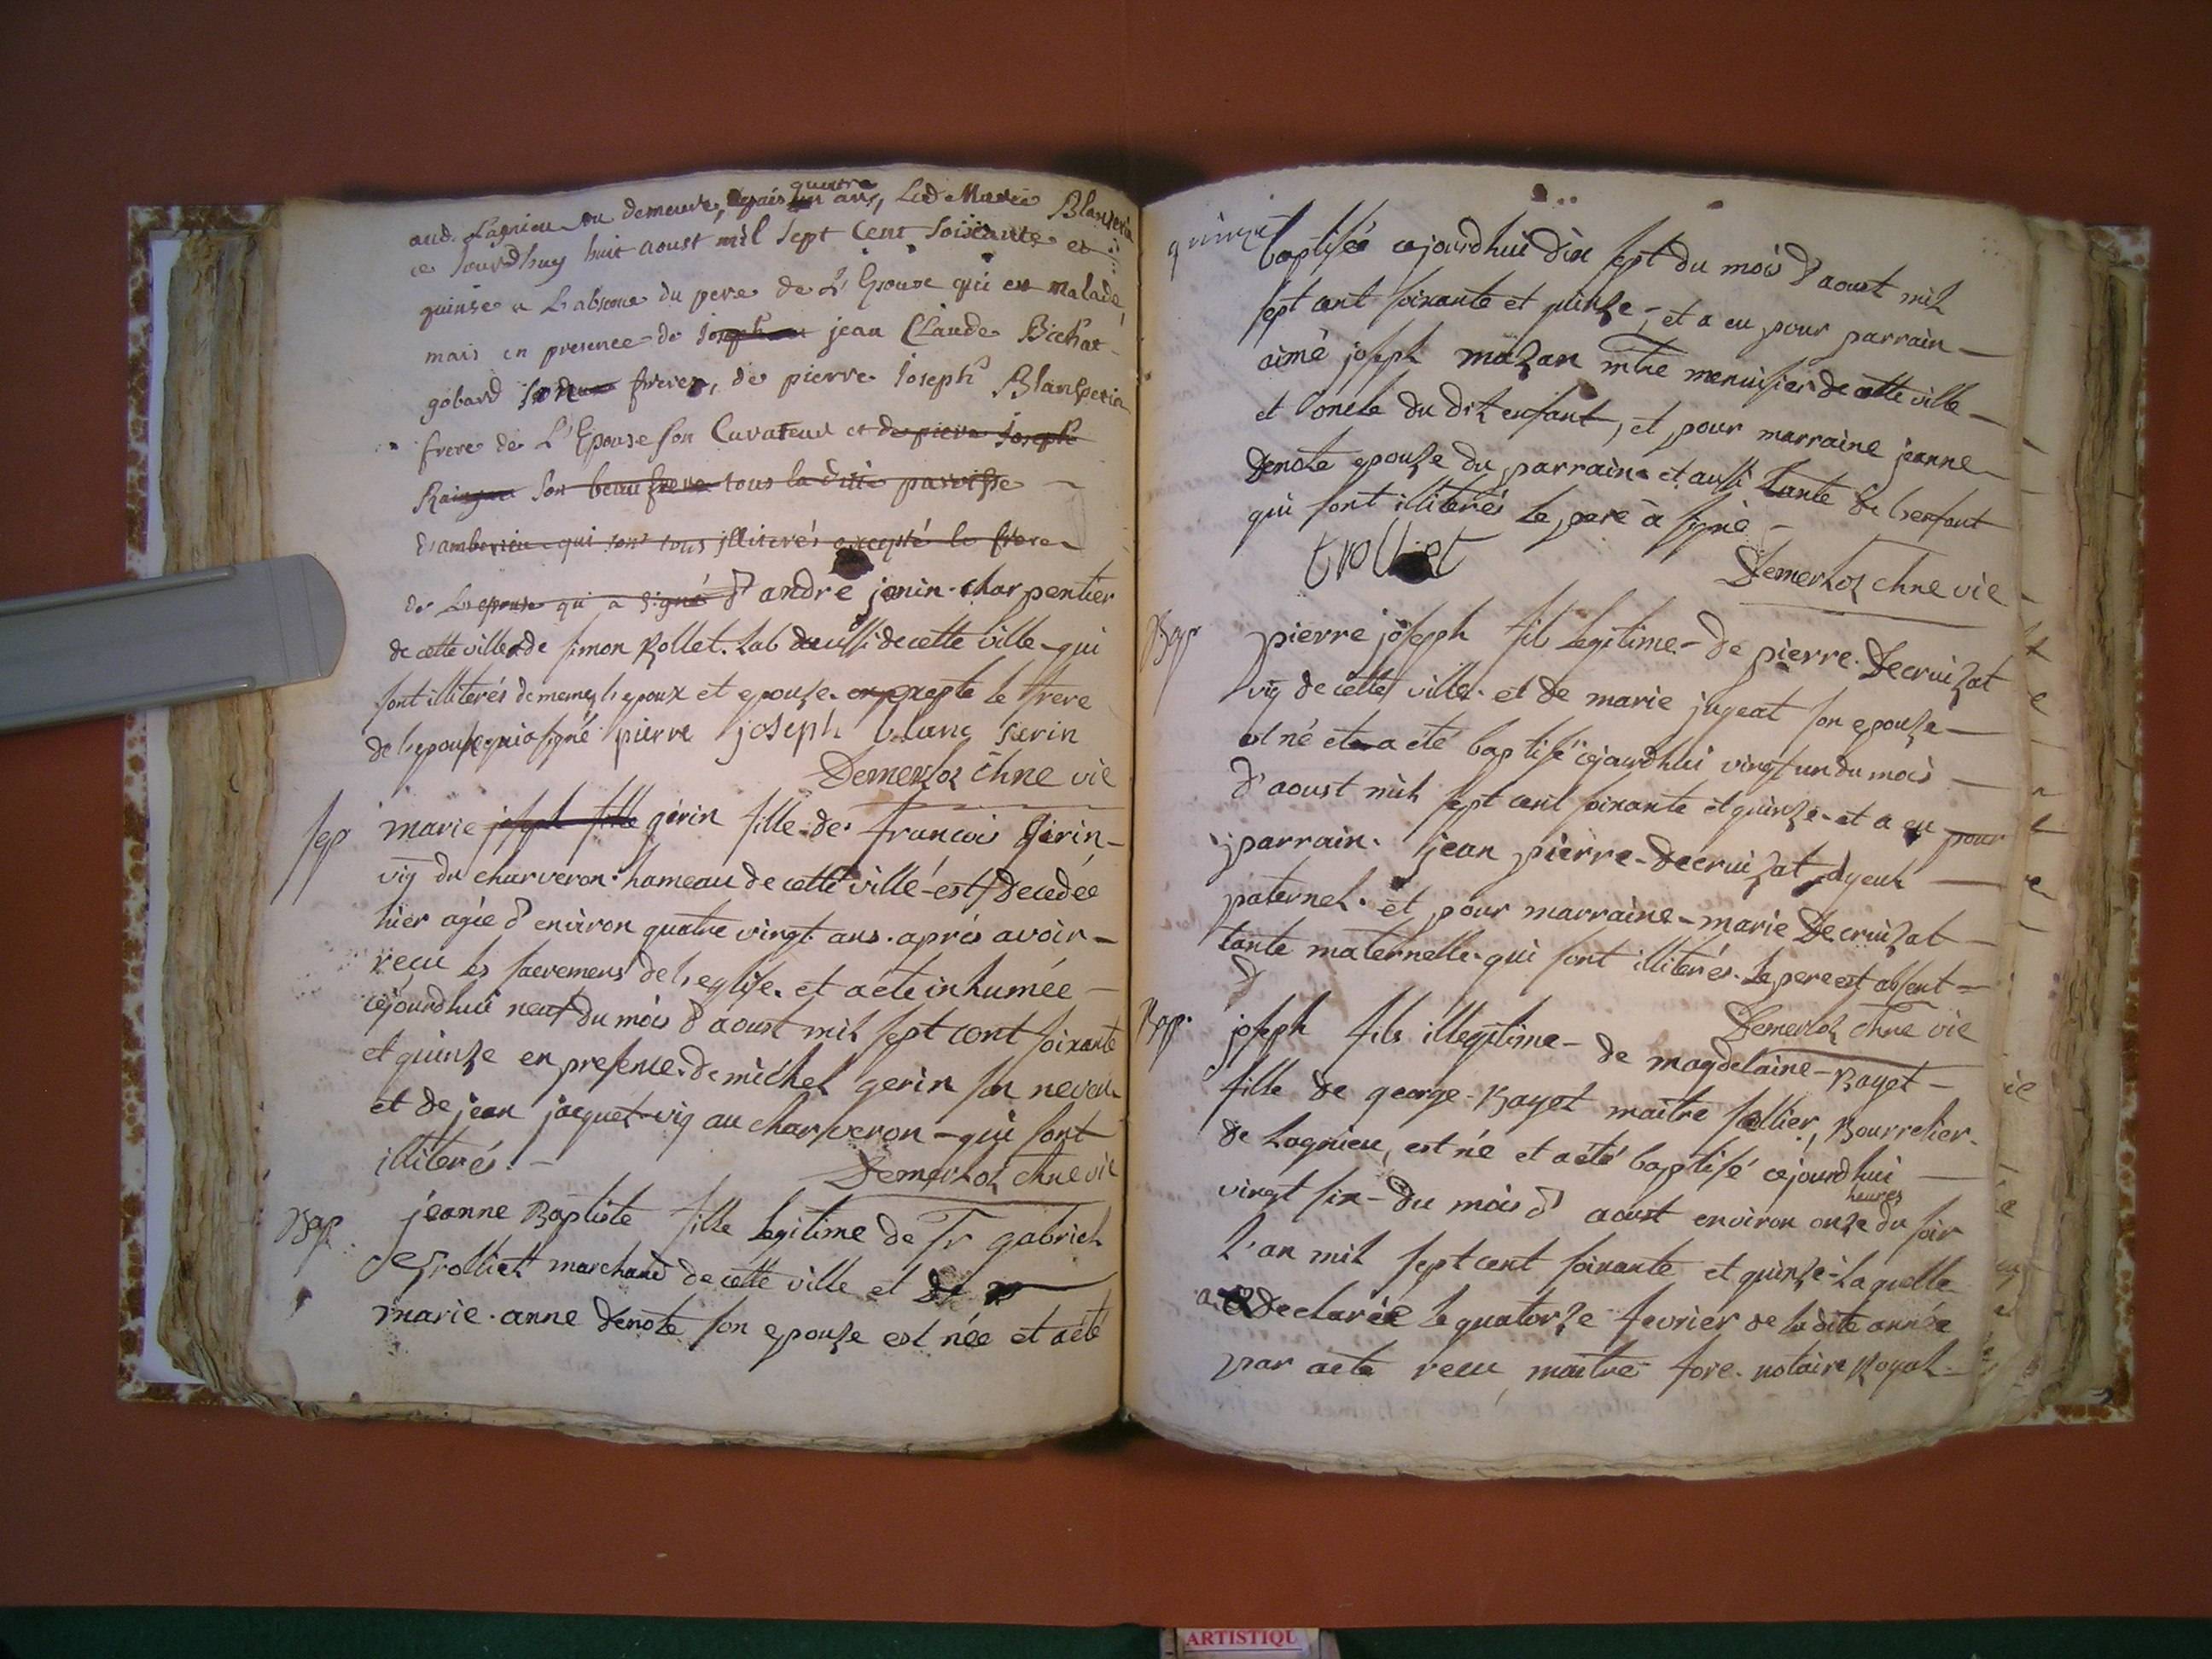 aud. Lagnieu ou demeure, depuis quatre ans, Lad Marie Blanserin
ce Jourdhuy huit aoust mil Sept Cent Soixante et
quinse a Labsence du pere de L'Epouse qui est malade,
mais en presence de Joseph jean Claude Bichat
gobard freres, de pierre Joseph Blanserin
frere de L'Epouse son Curateur et de pierre Joseph
son beau frere tous la dite paroisse
d'amberieu qui sont tous jlliterés excepté le frere
de Lepouse qui a signé d'andré janin charpentier
de cette ville de simon Rollet. Lab aussi de cette ville - qui
sont illiterés de meme lepoux et epouse. excepte le frere
de lepouse qui a signé pierre joseph blanc serin
Demerloz chne vic
sep marie joseph fille gérin fille de francois gérin -
vig du charveron hameau de cette ville - est decedée
hier agée d'environ quatre vingt ans. aprés avoir -
reçu les sacremens de l'eglise. et a eté inhumée -
cejourdhui neuf du mois d'aoust mil sept cent soixante
et quinze en presence de michel gerin son neveu
et de jean jacquet vig au charveron - qui sont
illiterés. -
Demerloz chne vic
Bap. jeanne Baptiste fille legitime de Sr gabriel
trolliet marchand de cette ville et de
marie. anne denote son epouze est née et a eté
baptisée cejourdhui dix sept du mois d'aoust mil
sept cent soixante et quinze -, et a eu pour parrain -
aimé joseph mazan mtre menuisier de cette ville -
et oncle du dit enfant, et pour marraine jeanne
denote epouze du parrain et aussi tante de l'enfant
qui sont illiterés le pere à signé -
trolliet
Demerloz chne vic
Bap pierre joseph fils legitime - de pierre. Decruizat
vig de cette ville. et de marie jugeat son epouze -
est né et a eté baptisé cejourdhui vingt un du mois -
d'aoust mil sept cent soixante et quinze - et a eu pour
parrain. jean pierre - decruizat ayeul -
paternel. et pour marraine - marie Decruizat -
tante maternelle. qui sont illiterés. le pere est absent =
Demerloz chne vic
Bap. joseph fils illegitime - de magdelaine - Bayet -
fille de george - Bayet maitre sellier, Bourrelier.
de Lagnieu, est né et a eté baptisé cejourdhui -
vingt six - du mois d'aoust environ onze heures du soir
l'an mil sept cent soixante et quinze - Laquelle
a declarée le quatorze fevrier de la dite année
par acte recu maitre fore. notaire Royal -